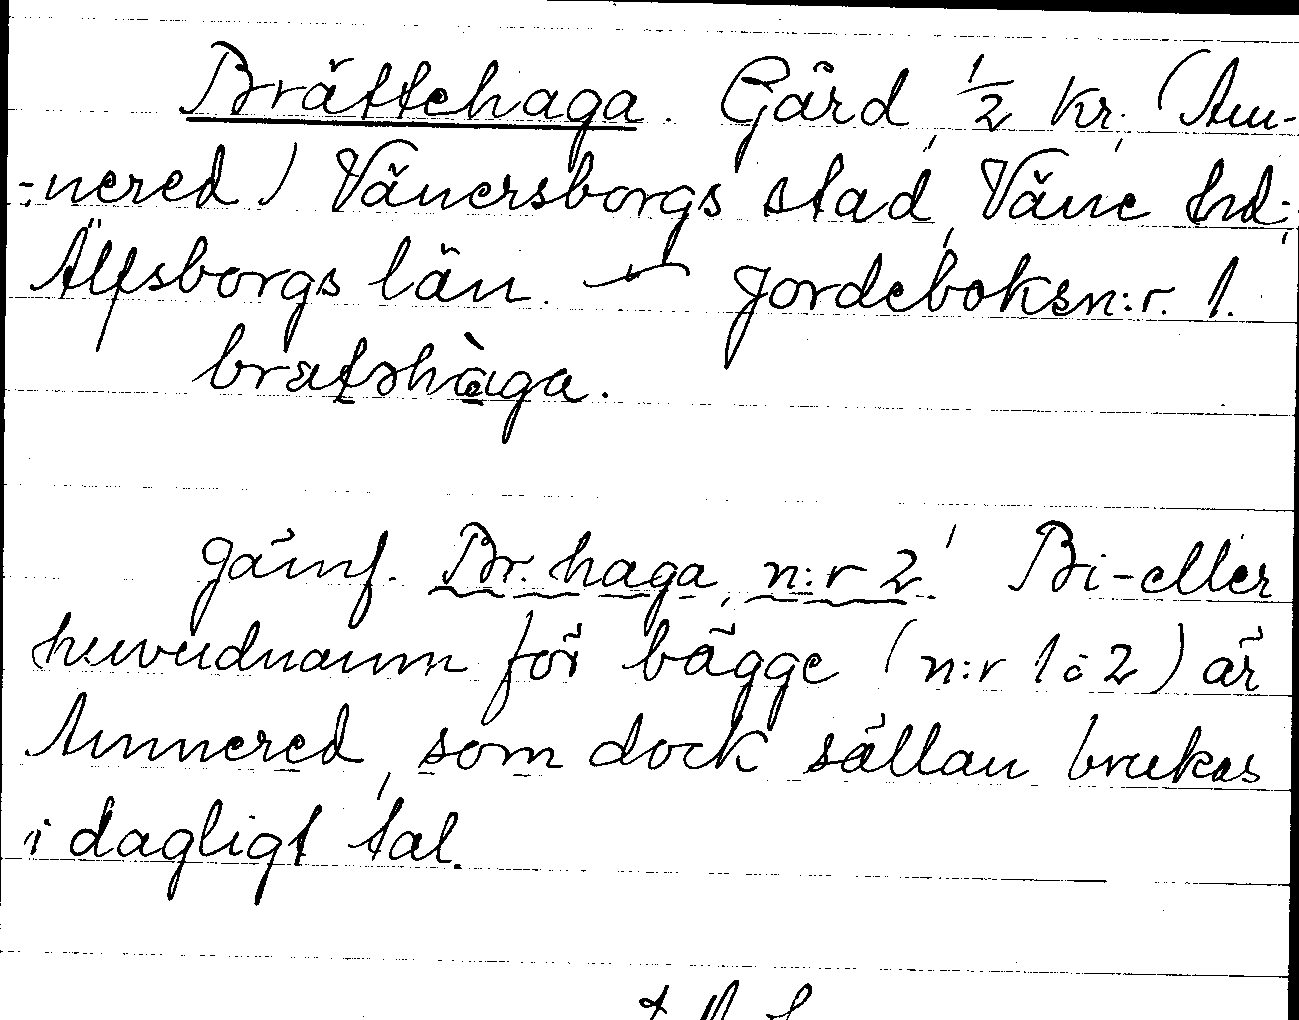 Brättehaga. Gård, 1/2 kr. (Am-
-nered) Vänersborgs stad, Väne hd;
Älfsborgs län. — Jordeboksn:r. 1.
bratəhàga.
Jämf. Br. haga, n:r 2! Bi-eller
huvudnamn för bägge (n:r 1 o 2) är
Amnered, som dock sällan brukas
i dagligt tal.